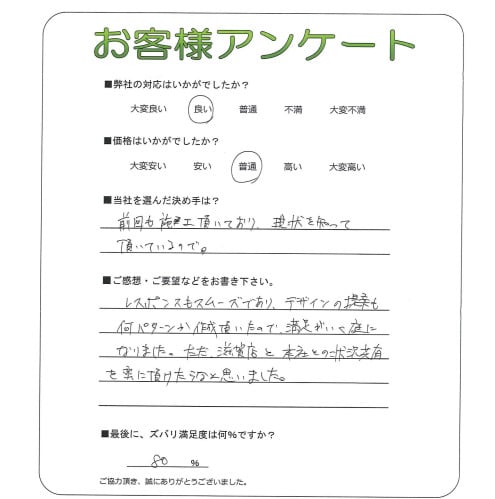 お客様アンケート
■弊社の対応はいかがでしたか？
大変良い 良い 普通 不満 大変不満
■価格はいかがでしたか？
大変安い 安い 普通 高い 大変高い
■当社を選んだ決め手は？
前回も施工頂いており、現状を知って
頂いているので。
■ご感想・ご要望などをお書き下さい。
レスポンスもスムーズであり、デザインの提案も
何パターンか作成頂いたので、満足がいく庭に
なりました。ただ、滋賀店と本社との状況共有
を密に頂けたらなと思いました。
■最後に、ズバリ満足度は何％ですか？
80 %
ご協力頂き、誠にありがとうございました。